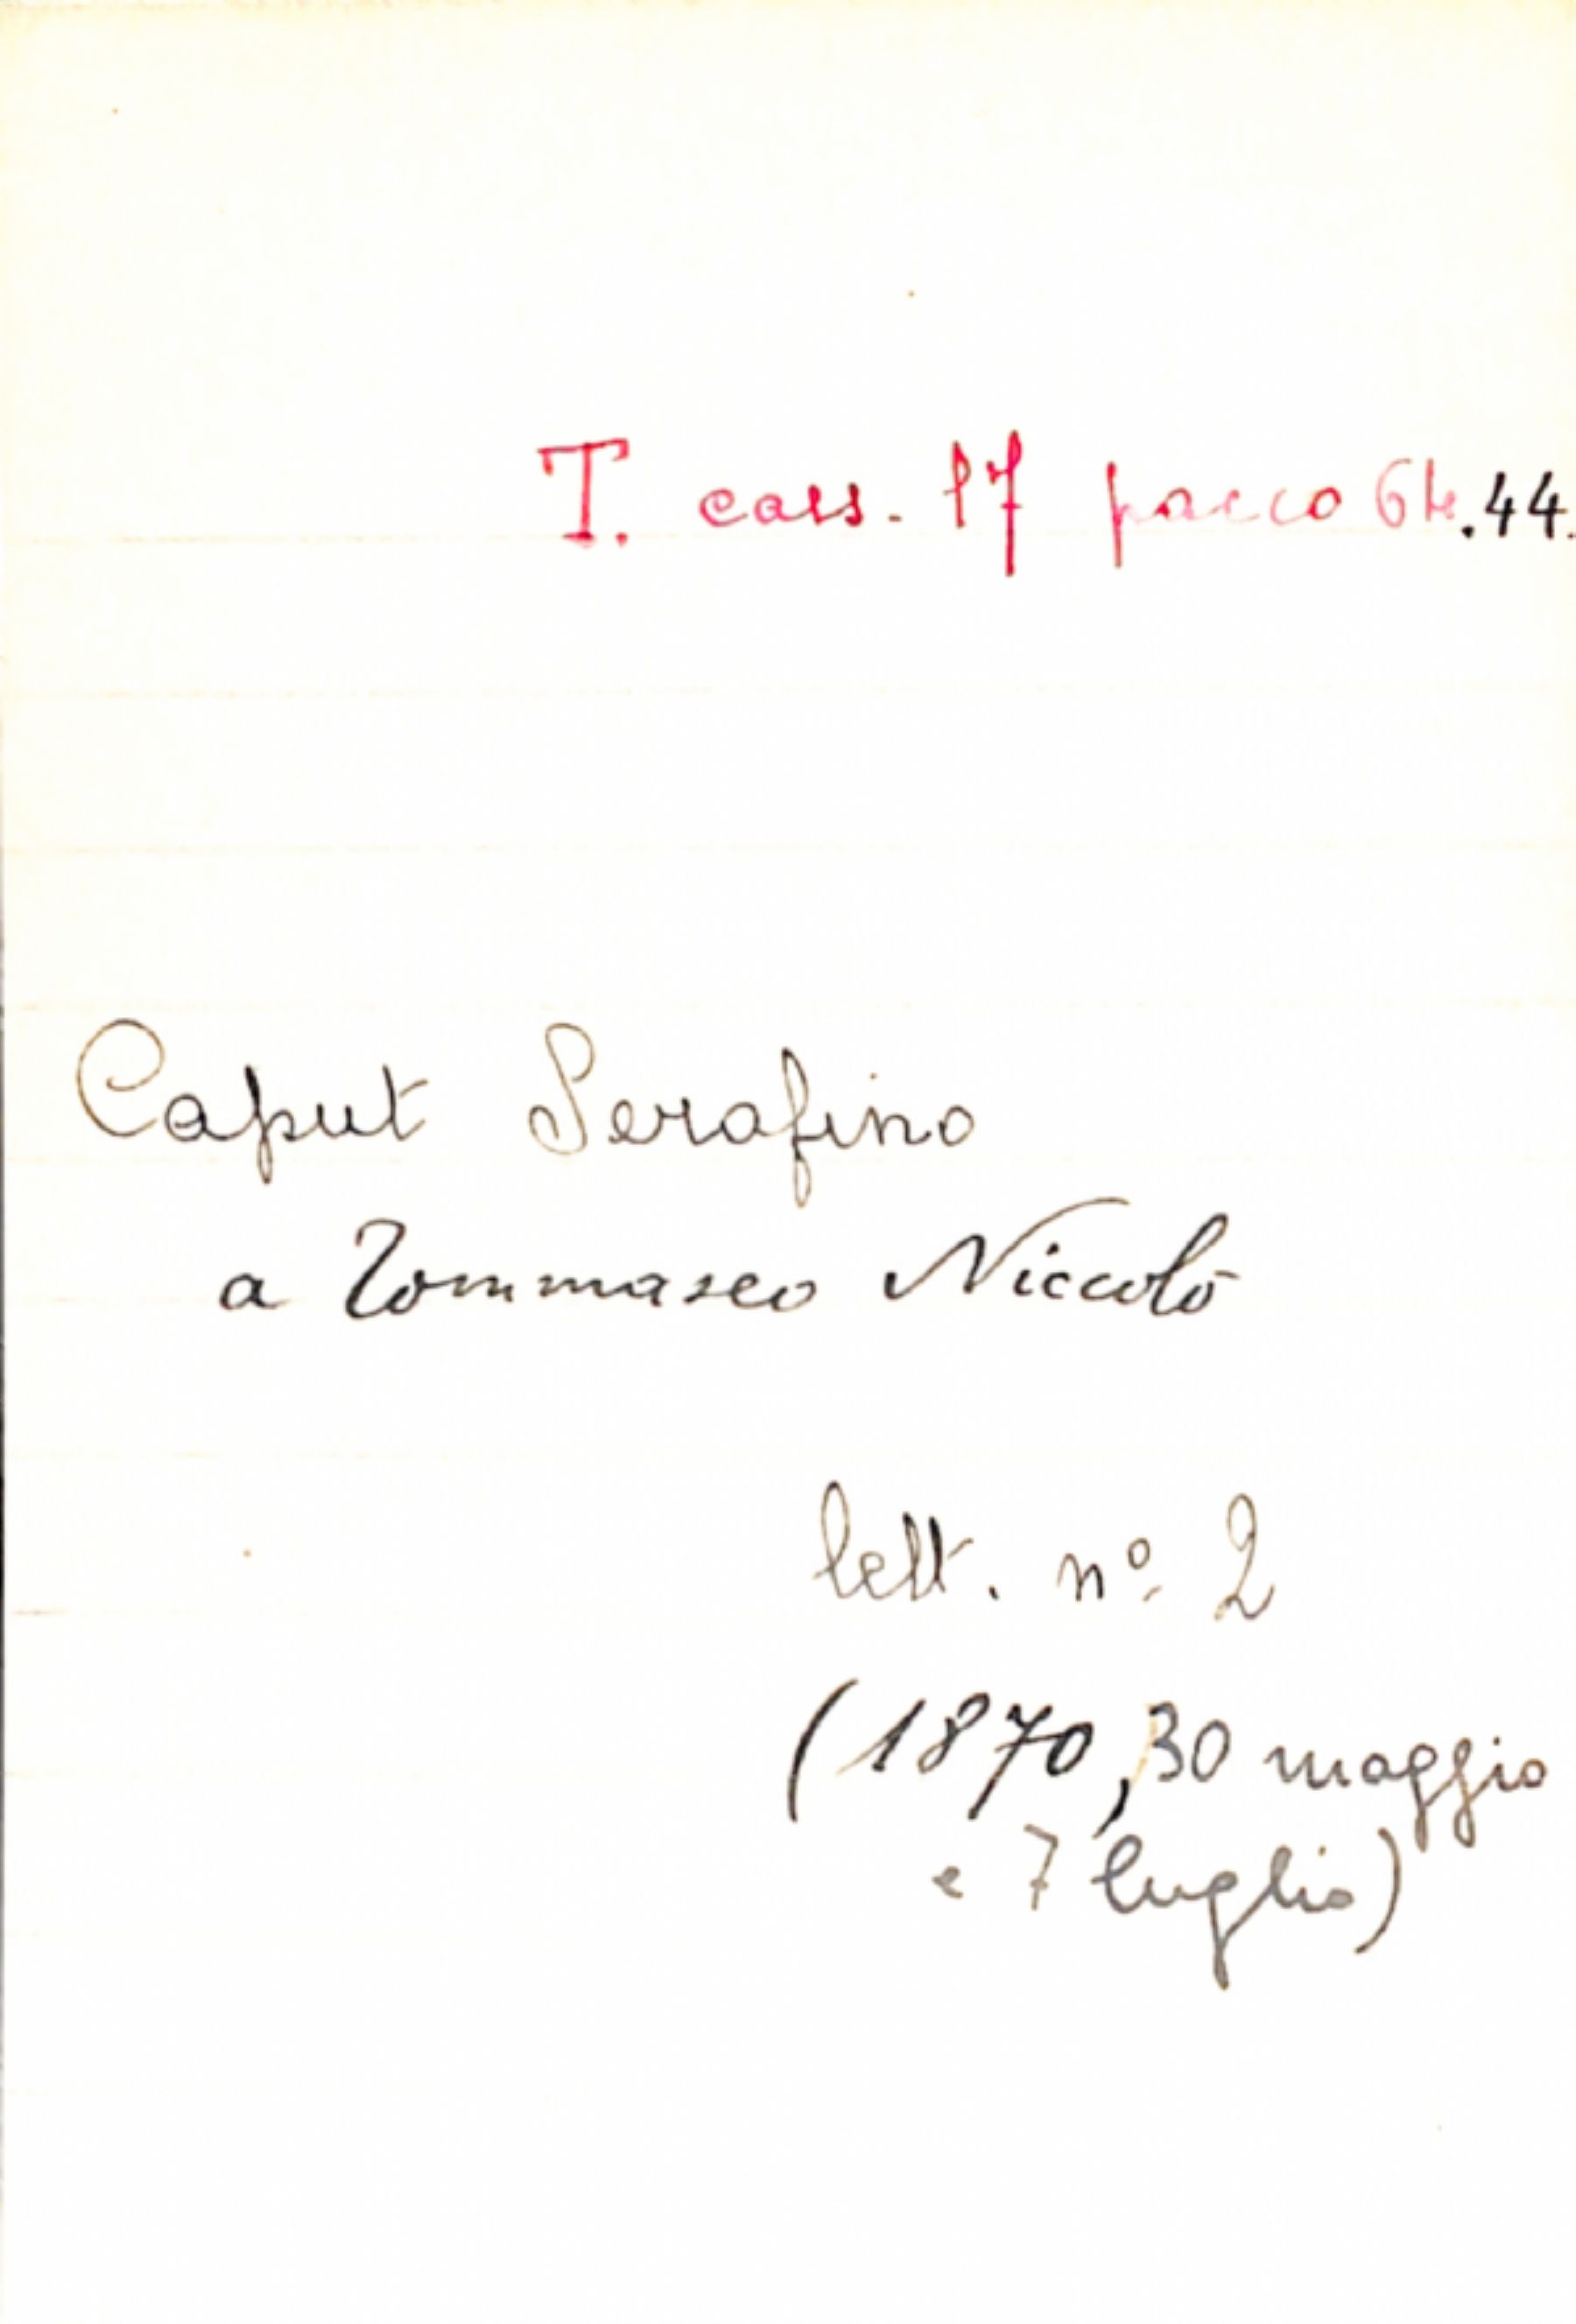 T. cass. 17 pacco 64.44.
Caput Serafino
a Tommaseo Niccolò
lett. nº 2
(1870, 30 maggio
e 7 luglio)